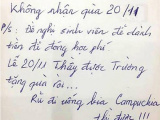 Không nhận quà 20/11
P/s: Đề nghị sinh viên để dành
tiền đi đóng học phí
Lễ 20/11 Thầy được Trường
tặng quà rồi...
Rủ đi uống bia Campuchia
thì được !!!